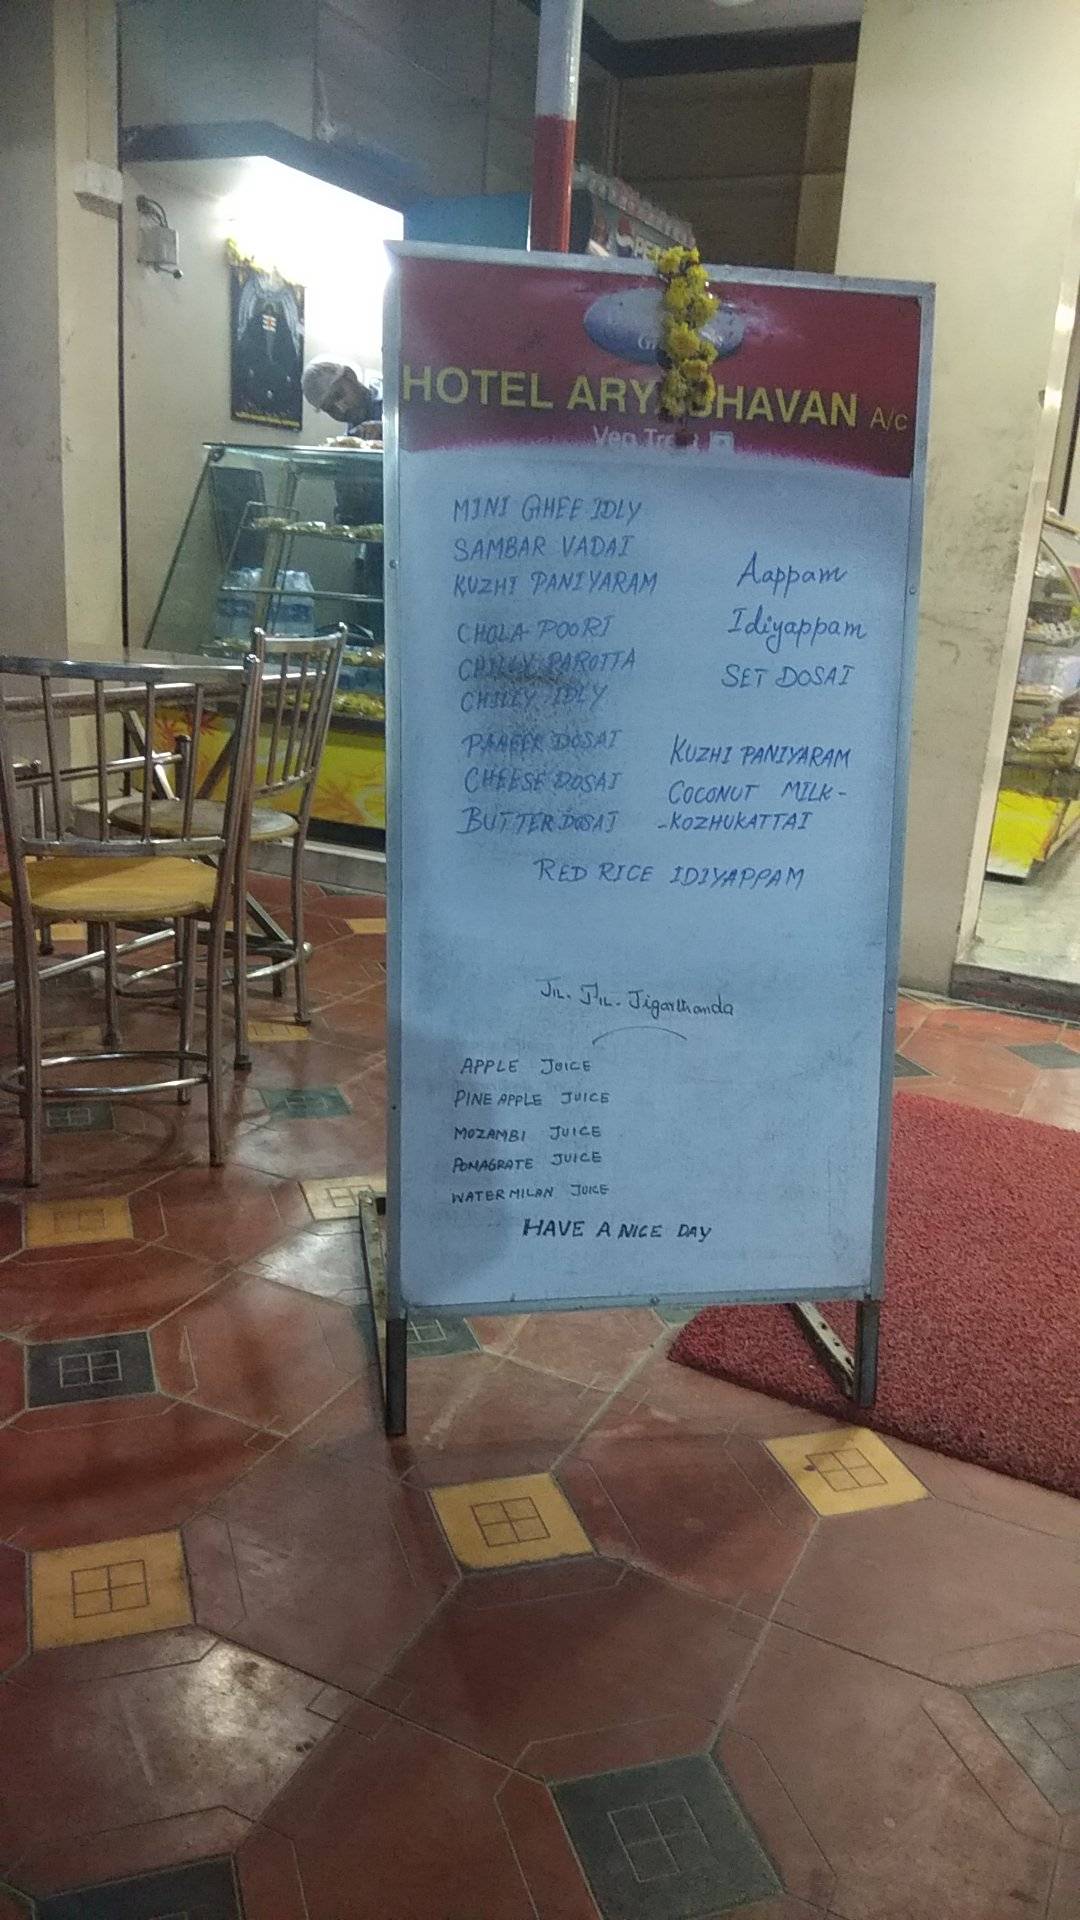 HOTEL ARYABHAVAN A/c
Veg
MINI GHEE IDLY
SAMBAR VADAI
KUZHI PANIYARAM
CHOLA POORI
CHILLY PAROTTA
CHILLY IDLY
PANEER DOSAI
CHEESE DOSAI
BUTTER DOSAI
Aappam
Idiyappam
SET DOSAI
KUZHI PANIYARAM
COCONUT MILK-
-KOZHUKATTAI
RED RICE IDIYAPPAM
JIL. JIL. Jigarthanda
APPLE JUICE
PINE APPLE JUICE
MOZAMBI JUICE
POMAGRATE JUICE
WATER MILAN JUICE
HAVE A NICE DAY